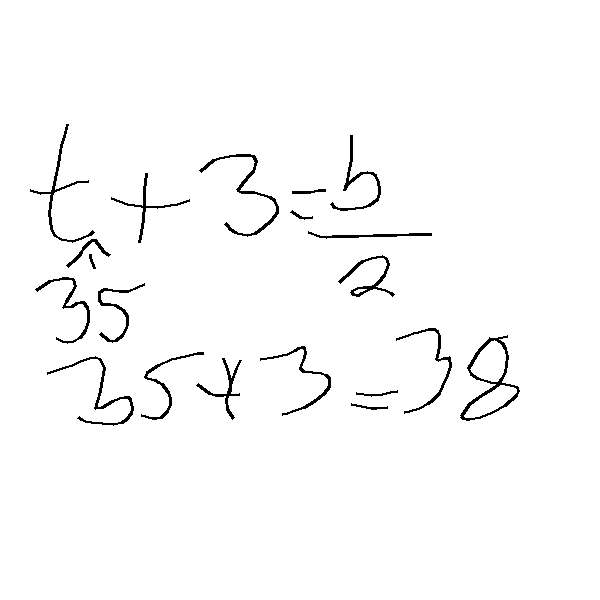 t + 3 = b/2
35
35 + 3 = 38